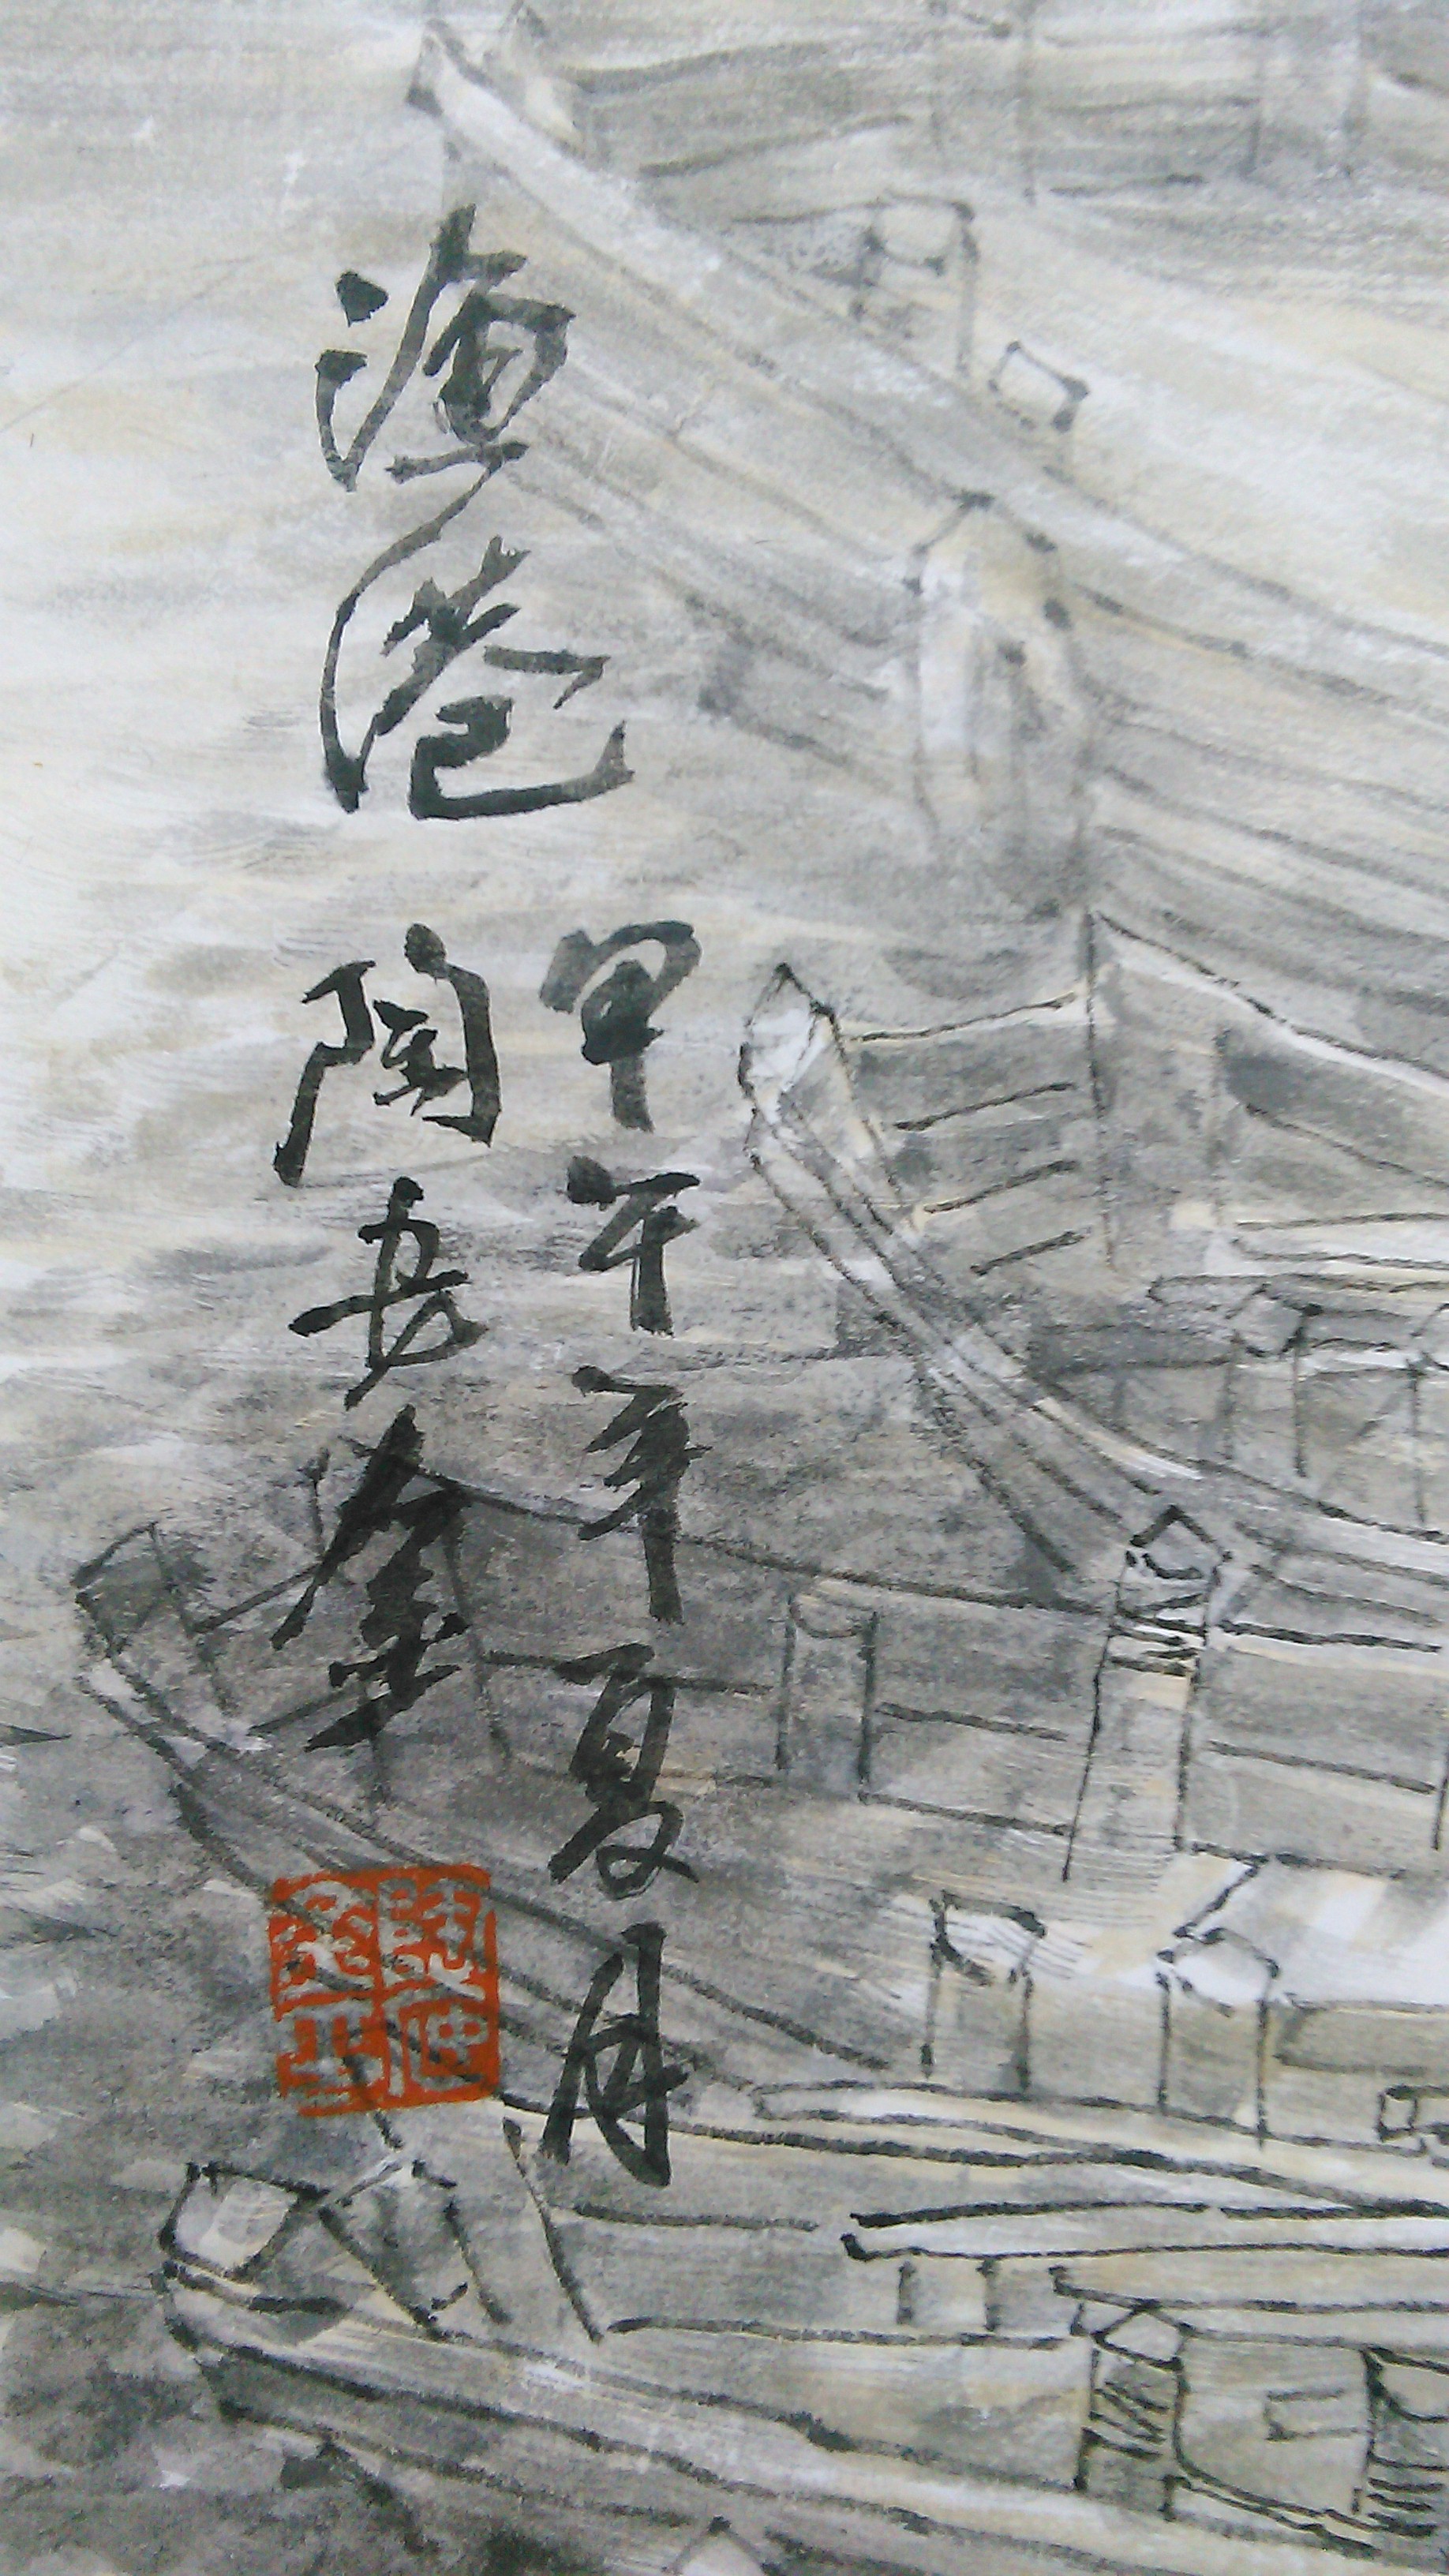 渔港
甲午年夏月
陶